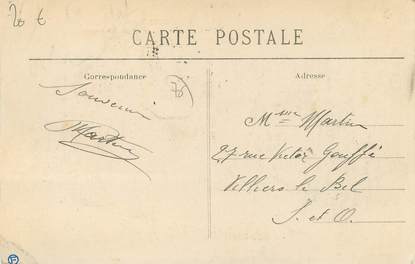 20 €
CARTE POSTALE
Correspondance
Adresse
Souvenir
Martin
Mme Martin
27 rue Victor Gouffé
Villiers le Bel
S. et O.